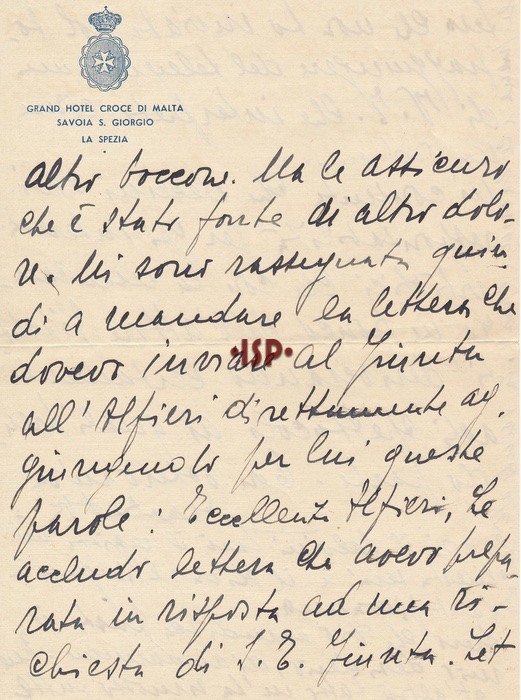 GRAND HOTEL CROCE DI MALTA
SAVOIA S. GIORGIO
LA SPEZIA
altro boccone. Ma le assicuro
che è stato fonte di altro dolo-
re. Mi sono rassegnata quin
di a mandare la lettera che
dovevo inviare al Giunta
all'Alfieri direttamente ag.
giungendo per lui queste
parole: Eccellenza Alfieri, Le
accludo lettera che avevo prepa
rata in risposta ad una ri-
chiesta di S. E. Giunta. Let
·JSP·